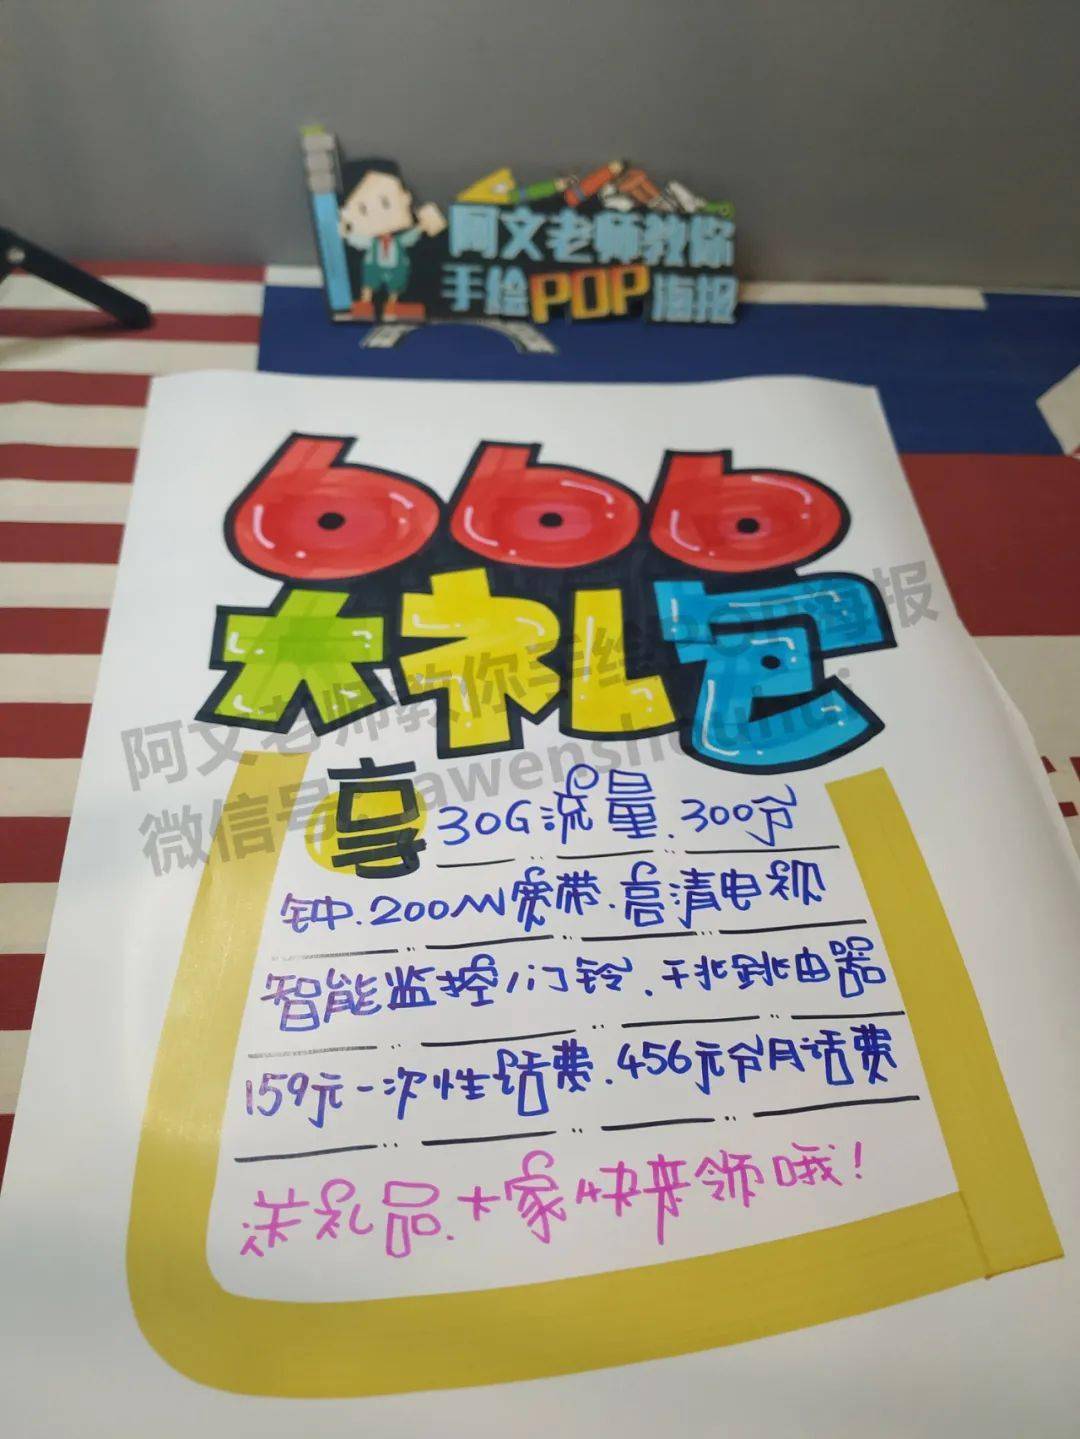 阿文老师教你
手绘POP海报
666
大礼包
享30G流量.300分
钟.200M宽带.高清电视
智能监控/门铃.千兆路由器
159元一次性话费.456元分月话费
送礼品.大家快来领哦!
阿文老师教你手绘POP海报
微信号:awenshouhui